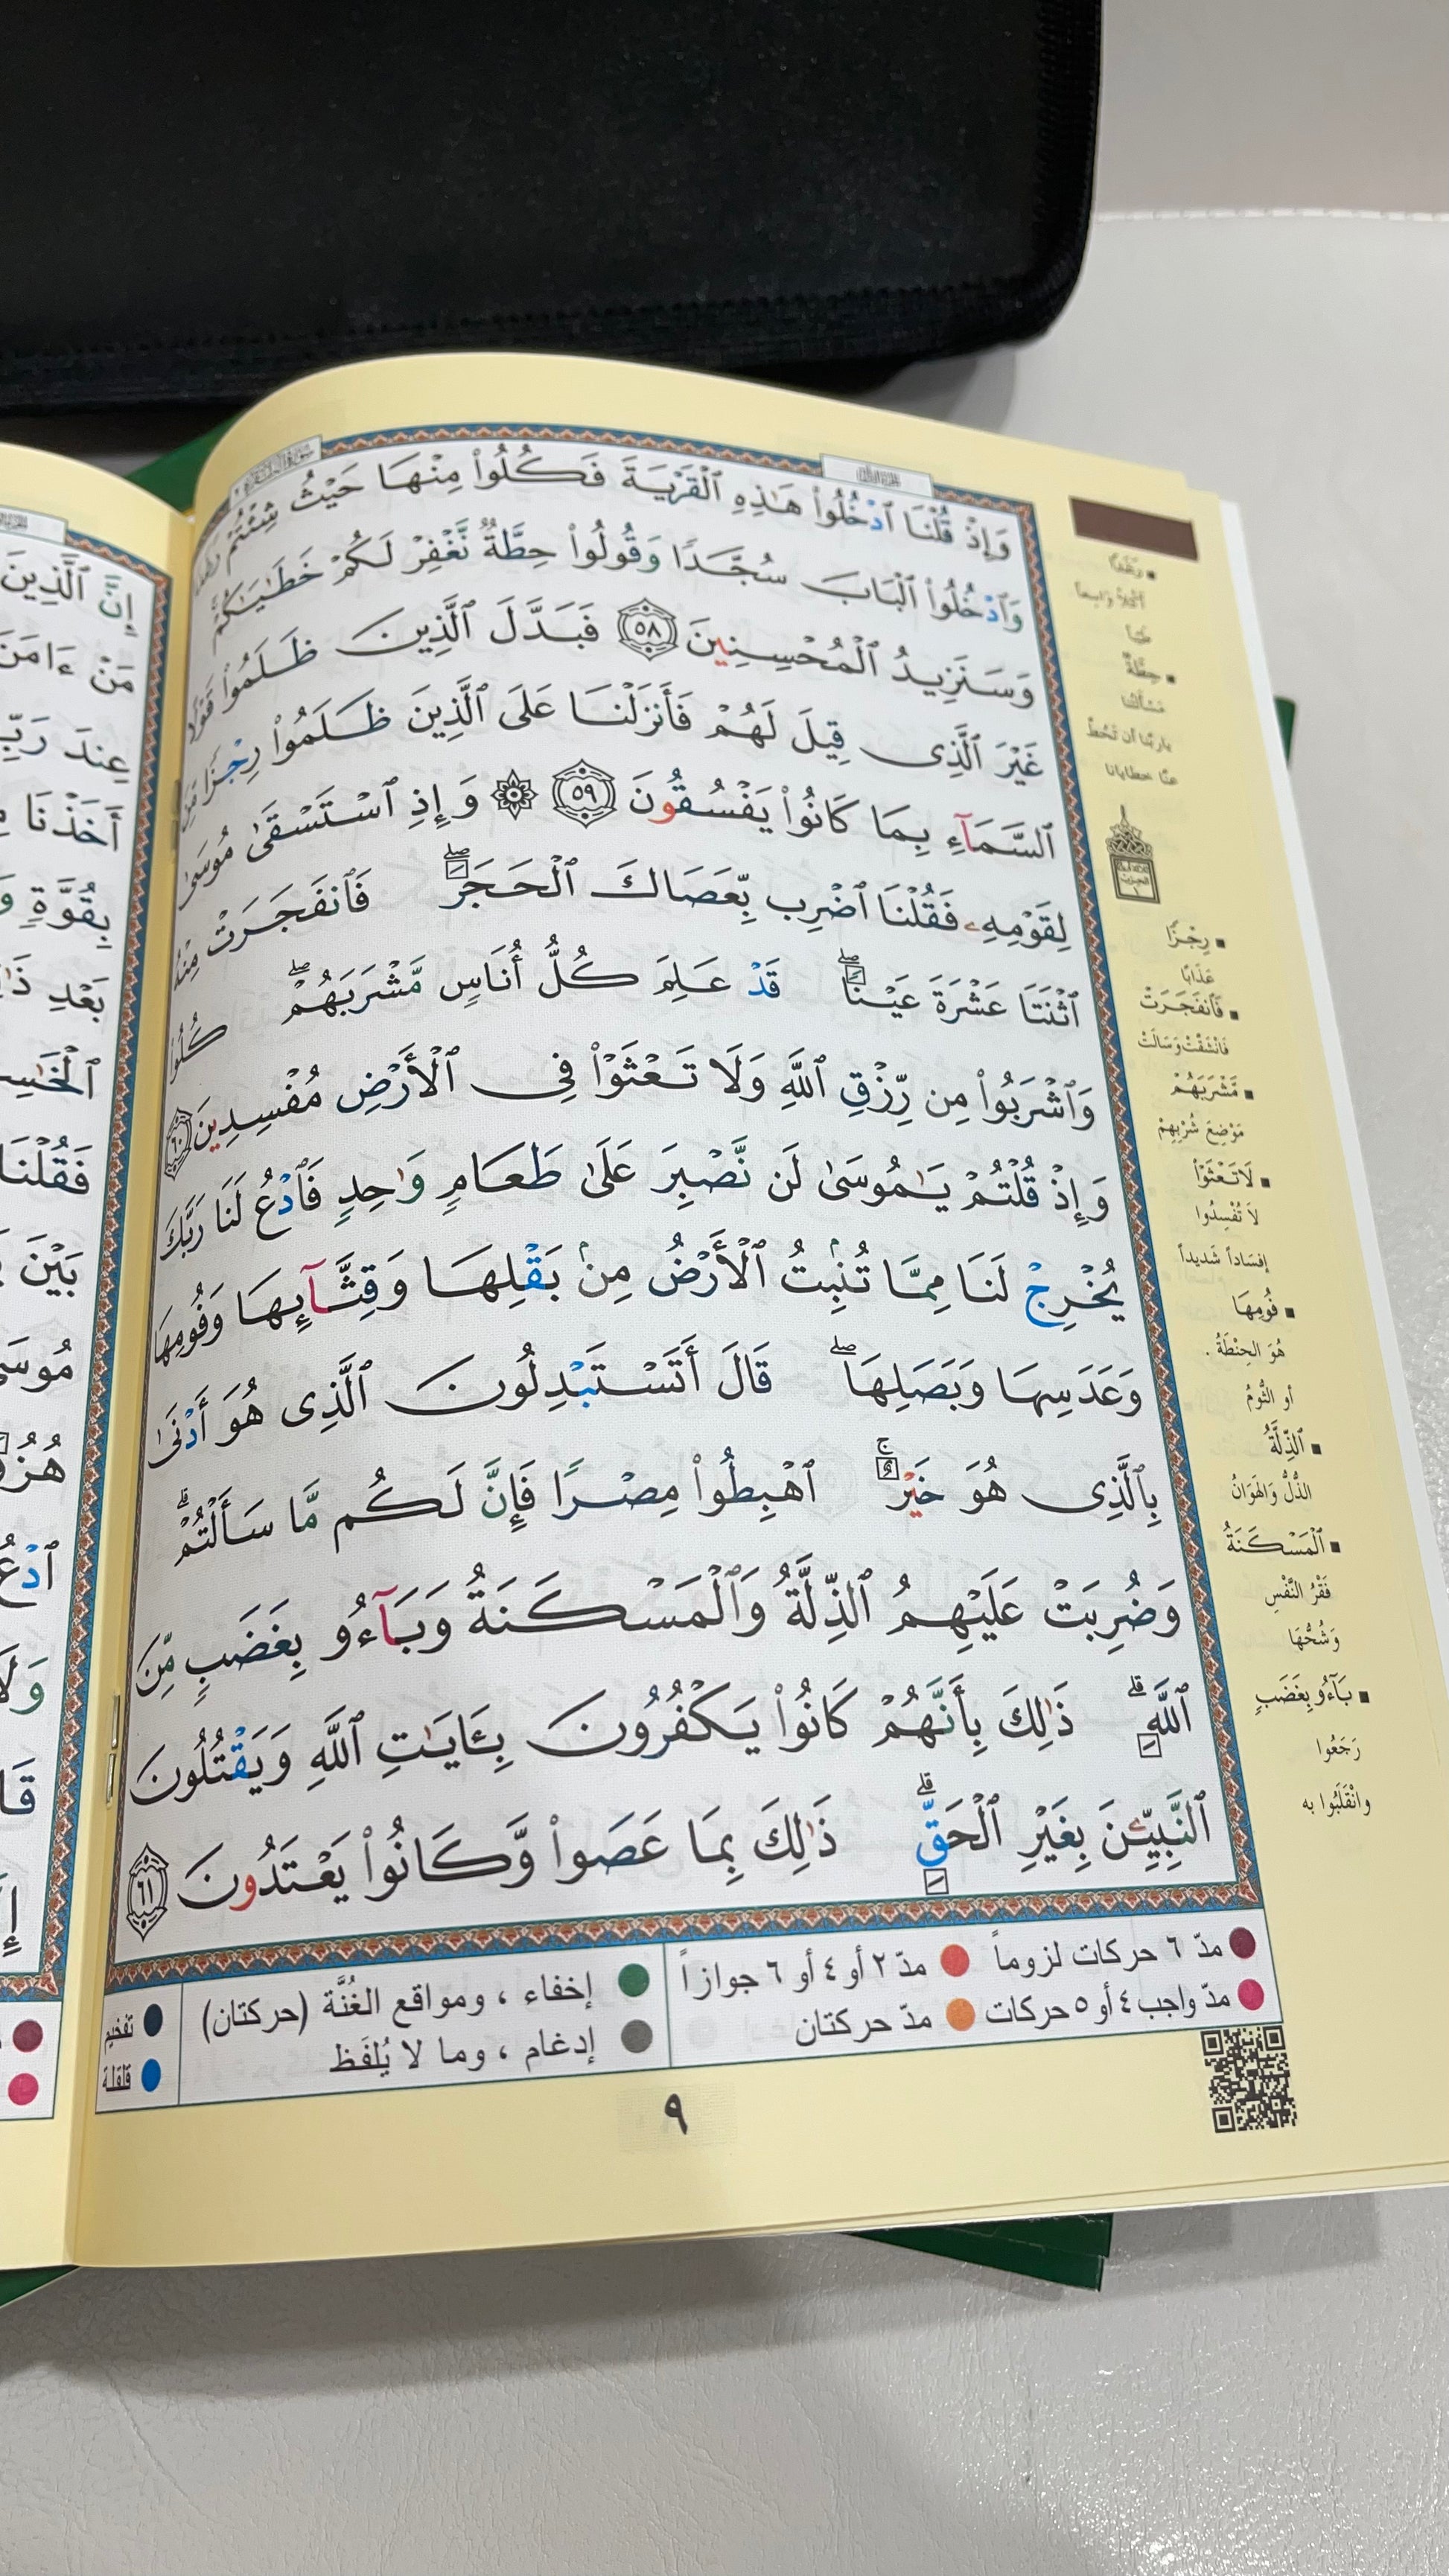 وَإِذْ قُلْنَا ٱدْخُلُوا۟ هَـٰذِهِ ٱلْقَرْيَةَ فَكُلُوا۟ مِنْهَا حَيْثُ شِئْتُمْ رَغَدًا
وَٱدْخُلُوا۟ ٱلْبَابَ سُجَّدًا وَقُولُوا۟ حِطَّةٌ نَّغْفِرْ لَكُمْ خَطَـٰيَـٰكُمْ
وَسَنَزِيدُ ٱلْمُحْسِنِينَ ٥٨ فَبَدَّلَ ٱلَّذِينَ ظَلَمُوا۟ قَوْلًا
غَيْرَ ٱلَّذِى قِيلَ لَهُمْ فَأَنزَلْنَا عَلَى ٱلَّذِينَ ظَلَمُوا۟ رِجْزًا مِّنَ
ٱلسَّمَآءِ بِمَا كَانُوا۟ يَفْسُقُونَ ٥٩ ۞ وَإِذِ ٱسْتَسْقَىٰ مُوسَىٰ
لِقَوْمِهِۦ فَقُلْنَا ٱضْرِب بِّعَصَاكَ ٱلْحَجَرَ ۖ فَٱنفَجَرَتْ مِنْهُ
ٱثْنَتَا عَشْرَةَ عَيْنًا ۖ قَدْ عَلِمَ كُلُّ أُنَاسٍ مَّشْرَبَهُمْ ۖ كُلُوا۟
وَٱشْرَبُوا۟ مِن رِّزْقِ ٱللَّهِ وَلَا تَعْثَوْا۟ فِى ٱلْأَرْضِ مُفْسِدِينَ ٦٠
وَإِذْ قُلْتُمْ يَـٰمُوسَىٰ لَن نَّصْبِرَ عَلَىٰ طَعَامٍ وَٰحِدٍ فَٱدْعُ لَنَا رَبَّكَ
يُخْرِجْ لَنَا مِمَّا تُنۢبِتُ ٱلْأَرْضُ مِنۢ بَقْلِهَا وَقِثَّآئِهَا وَفُومِهَا
وَعَدَسِهَا وَبَصَلِهَا ۖ قَالَ أَتَسْتَبْدِلُونَ ٱلَّذِى هُوَ أَدْنَىٰ
بِٱلَّذِى هُوَ خَيْرٌ ۚ ٱهْبِطُوا۟ مِصْرًا فَإِنَّ لَكُم مَّا سَأَلْتُمْ ۗ
وَضُرِبَتْ عَلَيْهِمُ ٱلذِّلَّةُ وَٱلْمَسْكَنَةُ وَبَآءُو بِغَضَبٍ مِّنَ
ٱللَّهِ ۗ ذَٰلِكَ بِأَنَّهُمْ كَانُوا۟ يَكْفُرُونَ بِـَٔايَـٰتِ ٱللَّهِ وَيَقْتُلُونَ
ٱلنَّبِيِّـۧنَ بِغَيْرِ ٱلْحَقِّ ۗ ذَٰلِكَ بِمَا عَصَوا۟ وَّكَانُوا۟ يَعْتَدُونَ ٦١
رَغَدًا
حِطَّةٌ
مَسْأَلتُنا
يا ربَّنا أن تَحُطَّ
عنّا خطايانا
رِجْزًا
عَذَابًا
فَٱنفَجَرَتْ
فَانْشَقَّتْ وَسَالَتْ
مَّشْرَبَهُمْ
مَوْضِعَ شُرْبِهِمْ
لَا تَعْثَوْا۟
لَا تُفْسِدُوا
إفسَاداً شَديداً
فُومِهَا
هُوَ الحِنْطَةُ .
أو الثُّومُ
ٱلذِّلَّةُ
الذُّلُّ وَالهَوَانُ
ٱلْمَسْكَنَةُ
فَقْرُ النَّفْسِ
وَشُحُّهَا
بَآءُو بِغَضَبٍ
رَجَعُوا
وانْقَلَبُوا به
مدّ ٦ حركات لزوماً مدّ ٢ أو ٤ أو ٦ جوازاً
مدّ واجب ٤ أو ٥ حركات مدّ حركتان
إخفاء ، ومواقع الغُنَّة (حركتان)
إدغام ، وما لا يُلفَظ
تفخيم
قلقلة
٩
إِنَّ ٱلَّذِينَ
مَنْ ءَامَنَ
عِندَ رَبِّ
أَخَذْنَا
بِقُوَّةٍ
بَعْدِ
فَقُلْنَا
بَيْنَ